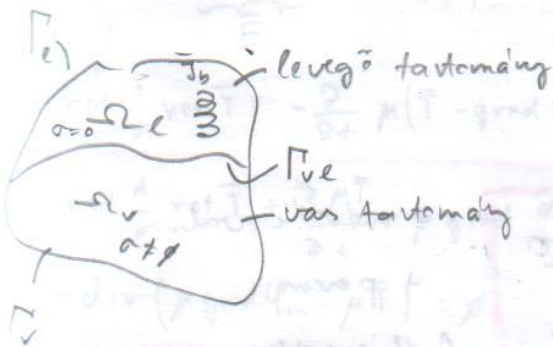 Γe
J̄b
levegő tartomány
σ=0 Ωe
Γve
Ωv
vas tartomány
σ≠0
Γv